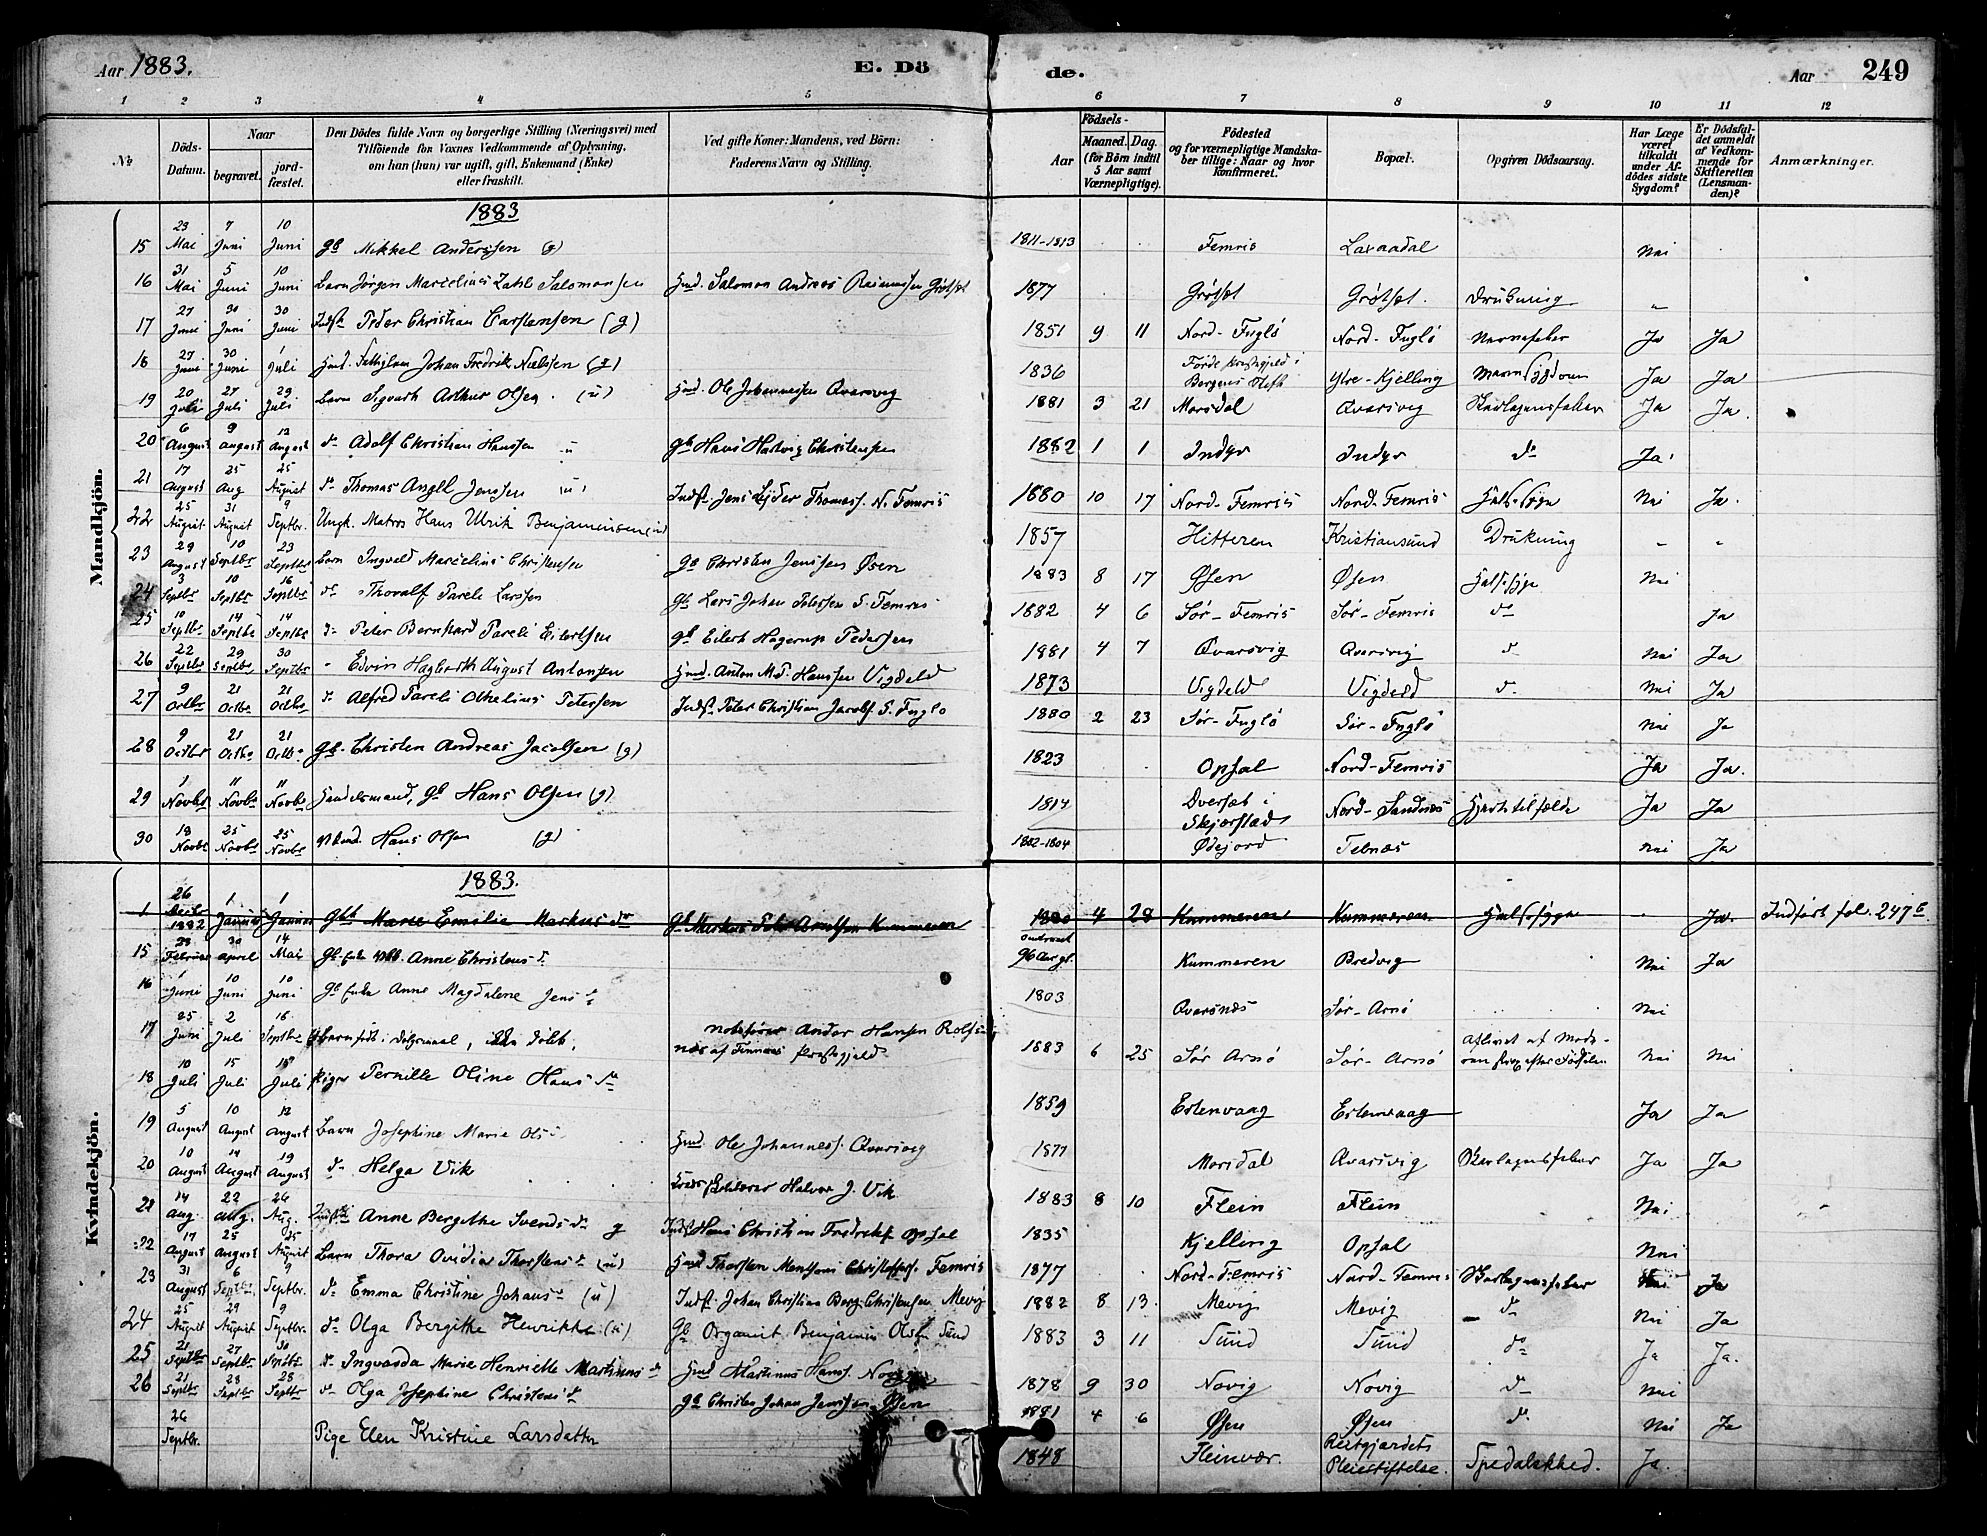 Aar 1883. E. Dö de. Aar 249
1 2 3 4 5 6 7 8 9 10 11 12
No
Döds-Datum.
Naar begravet. jordfæstet.
Den Dödes fulde Navn og borgerlige Stilling (Næringsvei) med Tilföiende for Voxnes Vedkommende af Oplysning, om han (hun) var ugift, gift, Enkemand (Enke) eller fraskilt.
Ved gifte Koner: Mandens, ved Börn: Faderens Navn og Stilling.
Födsels-
Aar Maaned. Dag. (for Börn indtil 5 Aar samt Værnepligtige).
Födested og for værnepligtige Mandskaber tillige: Naar og hvor konfirmeret.
Bopæl.
Opgiven Dödsaarsag.
Har Læge været tilkaldt under Afdödes sidste Sygdom?
Er Dödsfaldet anmeldt af Vedkommende for Skifteretten (Lensmanden)?
Anmærkninger.
Mandkjön.
1883
15 23 Mai 7 Juni 10 Juni Gb Mikkel Anderssen (g) 1811-1813 Femris Laxaadal Nei
16 31 Mai 5 Juni 10 Juni Barn Jørgen Marcelius Zahl Salomonsen Hmd. Salomon Andreas Rasmussen Grøtset 1877 Grøtset Grøtset. Drukning "
17 27 Juni 30 Juni 30 Juni Indst Peder Christian Carstensen (g) 1851 9 11 Nord-Fuglø Nord-Fuglø Nervefeber Ja Ja
18 27 Juni 30 Juni 1 Juli Hmd. Johan Fredrik Nielsen (g) 1836 Førde Præstegjeld i Bergens Stift Ytre-Kjelling Ja Ja
19 20 Juli 27 Juli 29 Juli Barn Sigvart Arthur Olsen. (u) Hmd. Ole Johannessen Qvarsvig 1881 3 21 Morsdal Qvarsvig Skarlagensfeber Ja Ja.
20 6 August 9 August 12 August do Adolf Christian Hanssen u Gb Hans Hartvig Christensen 1882 1 1 Indyr Indyr do Ja
21 17 August 25 Aug 25 August do Thomas Angell Jenssen (u) Indst. Jens Peder Thomass. N. Femris 1880 10 17 Nord-Femris Nord-Femris Halssyge Nei Ja.
22 25 August 31 August 9 Septbr. Ungk. Matros Hans Ulrik Benjaminsen (u) 1857 Hitteren Kristiansund Drukning - "
23 29 August 10 Septbr 23 Septbr Barn Ingvald Marcelius Christensen Gb Christen Jenssen Øsen 1883 8 17 Øsen Øsen Halssyge Nei
24 3 Septbr 10 Septbr 16 Septbr do Thoralf Pareli Larssen Gb Lars Johan Peterssen S. Femris 1882 4 6 Sør-Femris Sør-Femris do Ja
25 10 Septbr 14 Septbr 14 Septbr do Peter Bernhard Pareli Eilertsen Gb Eilert Hagerup Pedersen 1881 4 7 Qvarsvig Qvarsvig do Nei Ja
26 22 Septbr 29 Septbr. 30 Septbr " Edvin Hagbarth August Antonsen Hmd. Anton Md. Hanssen Vigdeld 1873 Vigdeld Vigdeld do Nei Ja
27 9 Octbr 21 Octbr 21 Octbr do Alfred Pareli Othelius Petersen Indst. Peter Christian Jacobs. S. Fuglø 1880 2 23 Sør-Fuglø Sør-Fuglø Nei Ja
28 9 Octbr 21 Octbr 21 Octbr Gb. Christen Andreas Jacobsen (g) 1823 Opsal Nord-Femris Ja Ja.
29 1 Novbr 11 Novbr 11 Novbr Handelsmand, Gb Hans Olsen (g) 1814 Øverset i Skjerstad Nord-Sandnæs Hjertetilfælde Ja Ja
30 18 Novbr 25 Novbr 25 Novbr Hans Olsen (g) 1802-1804 Ødejord Telnæs Nei Ja
Kvindekjön.
1883.
1 26 Decbr 1882 1 Januar 1 Januar Marie Emilie Markusdr Gb Markus Peter Arntsen Kummeren 1880 4 28 Kummeren Kummeren Halssyge Ja. Indført fol. 247b
15 23 Februar 30 April 14 Mai Gb Enke Anne Christensd. omtrent 96 Aar gl. Kummeren Bredvig Nei Ja
16 1 Juni 10 Juni 10 Juni Gb Enke Anne Magdalene Jensd. 1803 Qvarsnæs Sør-Arnø Nei
17 25 Juni 2 Juli 16 Septbr Barn født i Dølgsmaal, ikke døbt. Andor Hansen Rolfsnæs af Finnæs Præstegjeld 1883 6 25 Sør Arnø Sør-Arnø Aflivet af Moderen strax efter Fødselen Nei Nei
18 10 Juli 15 Juli 15 Juli Pige Pernille Oline Hansdr 1859 Estenvaag Estenvaag Ja Ja
19 5 August 10 August 12 August Barn Josephine Marie Olsd. Hmd. Ole Johanness. Qvarsvig 1877 Morsdal Qvarsvig Skarlagensfeber Ja Ja
20 10 August 14 August 19 August do Helga Vik Halvor J. Vik 1883 8 10 Flein Flein Nei
21 14 Aug. 22 Aug. 26 Aug. Anne Bergithe Svendsdr g Indst Hans Christian Fredriks. Opsal 1835 Kjelling Opsal Nei
22 17 August 25 August 25 August Barn Thora Ovidia Thorstensd. (u) Hmd Thorsten Mentsoni Christoffers. Femris 1877 Nord-Femris Nord-Femris Skarlagensfeber Nei Ja
23 31 August 6 Septbr. 9 Septbr. do Emma Christine Johansd. (u) Indst. Johan Christian Berg Christensen Mevig 1882 8 13 Mevig Mevig do Nei Ja
24 25 August 29 August 9 Septbr. do Olga Bergithe Henrikke (u) Gb Organist Benjamin Olsen Sund 1883 3 11 Sund Sund do Ja Ja.
25 21 Septbr 27 Septbr 30 Septbr do Ingvarda Marie Henriette Martinusdr Hmd Martinus Hans. Novig 1878 9 30 Novig Novig do Nei
26 21 Septbr 28 Septbr 28 Septbr do Olga Josephine Christensd. Gb Christen Johan Jenssen Øsen 1881 4 6 Øsen Øsen do Nei Ja
26 Septbr. Pige Elen Kristine Larsdatter 1848 Fleinvær. Reitgjærdets Pleiestiftelse. Spedalskhed. Ja.